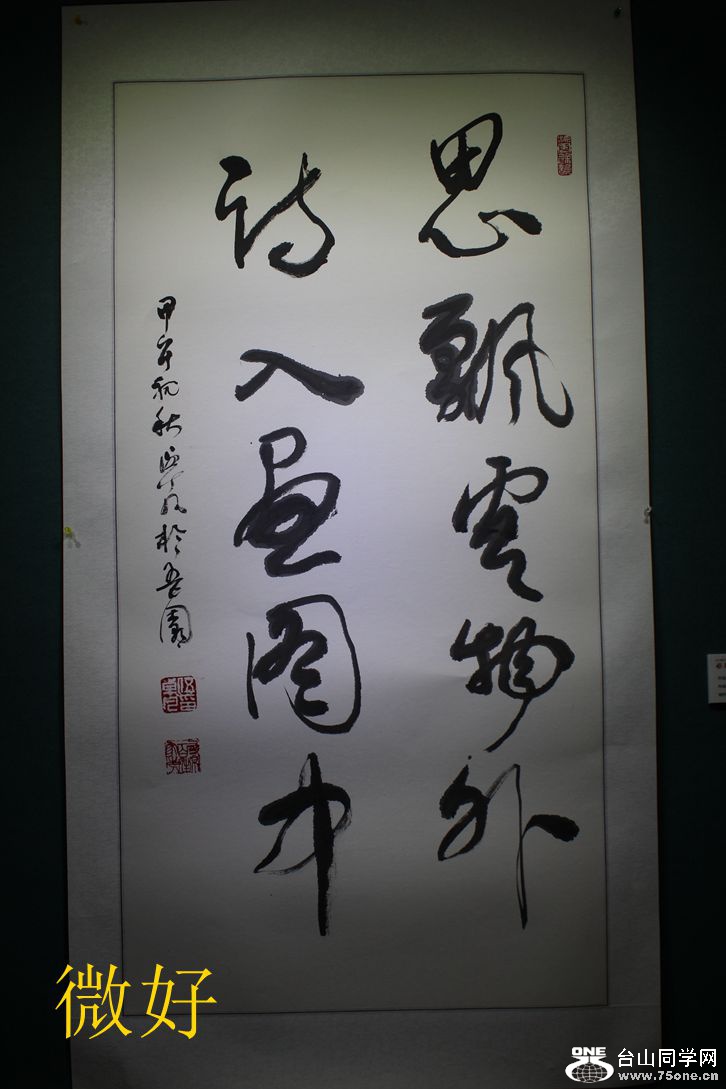 思飘云物外
诗入画图中
甲午初秋
微好
ONE
台山同学网
www.75one.cn